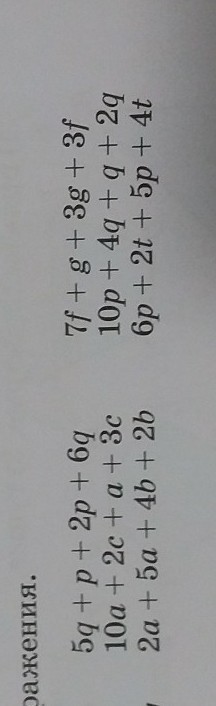 ражения.
5q + p + 2p + 6q 7f + g + 3g + 3f
10a + 2c + a + 3c 10p + 4q + q + 2q
2a + 5a + 4b + 2b 6p + 2t + 5p + 4t